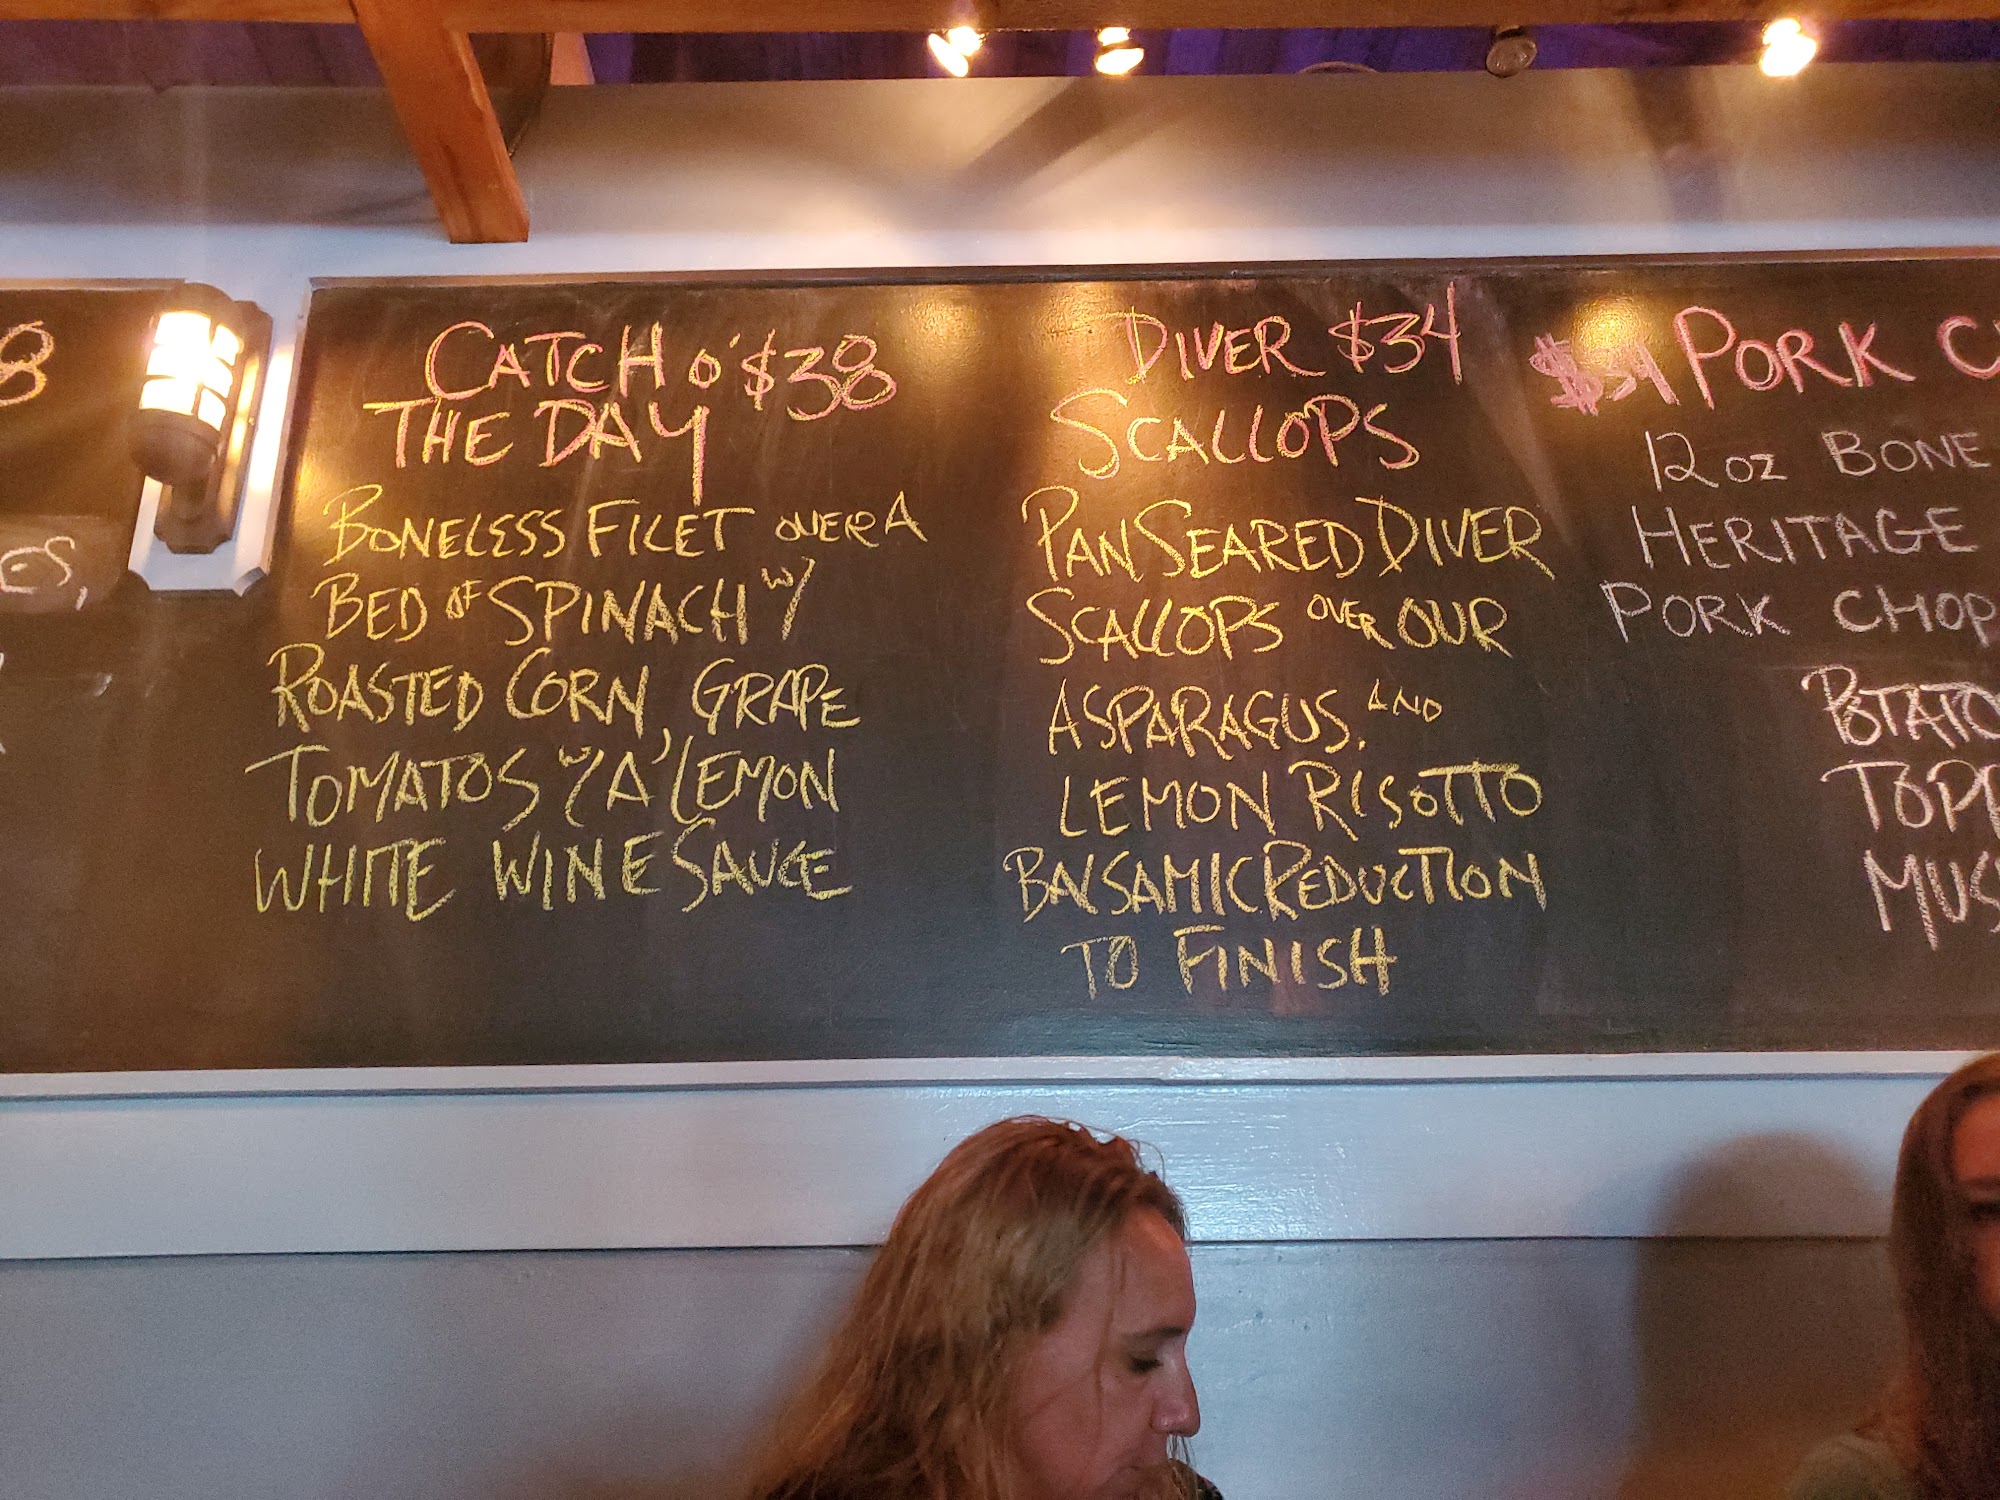 8
ES,
CATCH O' $38
THE DAY
BONELESS FILET OVER A
BED OF SPINACH W/
ROASTED CORN, GRAPE
TOMATOS W/ A' LEMON
WHITE WINE SAUCE
DIVER $34
SCALLOPS
PAN SEARED DIVER
SCALLOPS OVER OUR
ASPARAGUS. AND
LEMON RISOTTO
BALSAMIC REDUCTION
TO FINISH
$34 PORK C
12 OZ BONE
HERITAGE
PORK CHOP
POTATO
TOPP
MUS